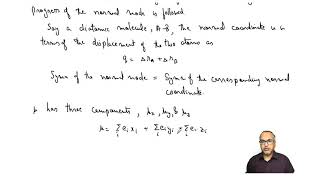 Progress of the normal mode is followed
Say a diatomic molecule, A-B, the normal coordinate is in
terms of the displacement of the two atoms as
q = Δr_A + Δr_B
Symm of the normal mode = Symm of the corresponding normal
coordinate.
μ has three components, μ_x, μ_y, & μ_z
μ = Σ_i e_i x_i + Σ_i e_i y_i + Σ_i e_i z_i